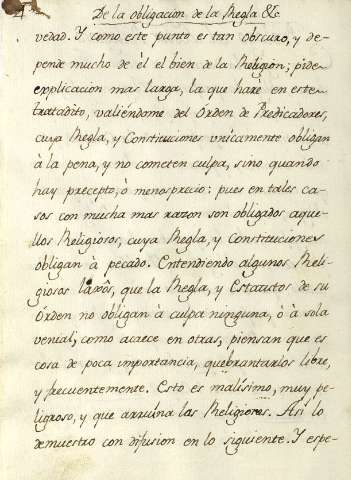 4 De la obligacion de la Regla &c
vedad. Y como este punto es tan obscuro, y de-
pende mucho de él el bien de la Religion; pide
explicacion mas larga, la que haré en este
tratadito, valiéndome del Órden de Predicadores,
cuya Regla, y Constituciones unicamente obligan
à la pena, y no cometen culpa, sino quando
hay precepto, ò menosprecio: pues en tales ca-
sos con mucha mas razon son obligados aque-
llos Religiosos, cuya Regla, y Constituciones
obligan à pecado. Entendiendo algunos Reli-
giosos laxôs, que la Regla, y Estatutos de su
Órden no obligan à culpa ninguna, ò à sola
venial, como acaece en otras, piensan que es
cosa de poca importancia, quebrantarlos libre,
y frecuentemente. Esto es malísimo, muy pe-
ligroso, y que arruina las Religiones. Así lo
demuestro con difusion en lo siguiente. Y espe-